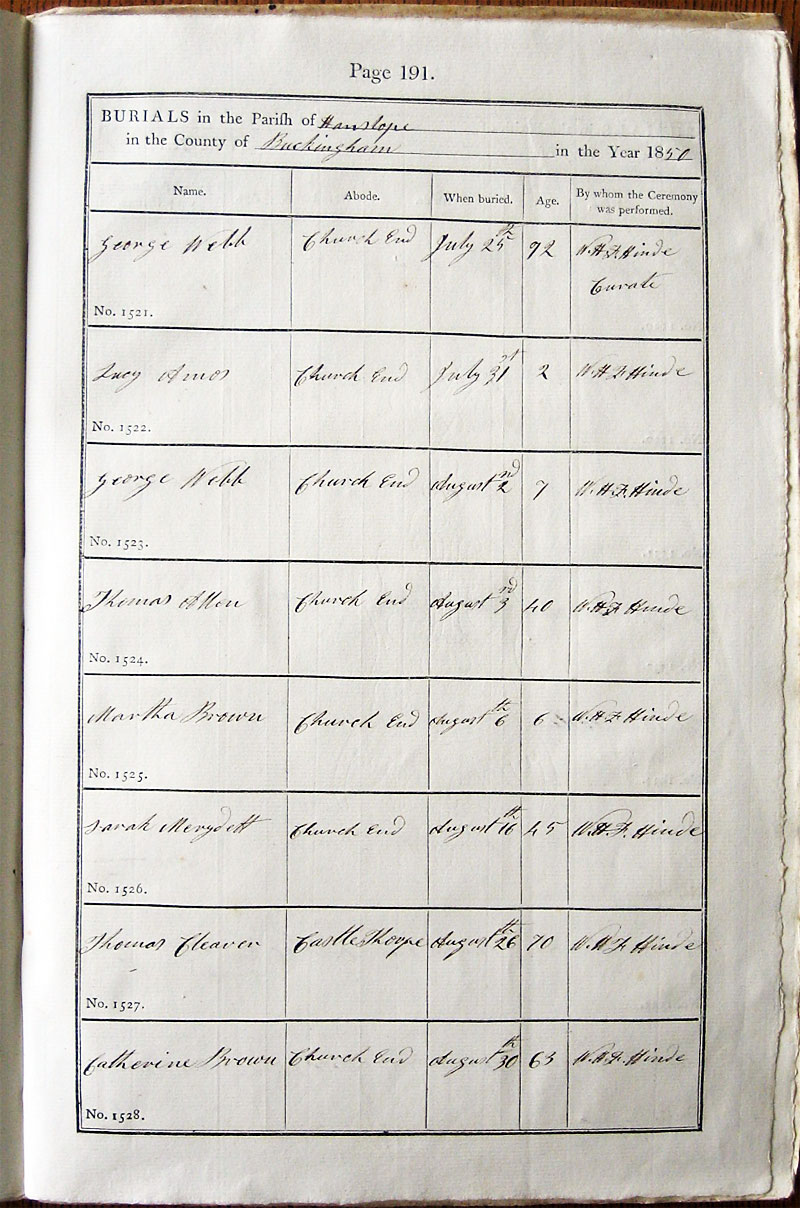 Page 191.
BURIALS in the Parish of Hanslope
in the County of Buckingham in the Year 1850
Name. Abode. When buried. Age. By whom the Ceremony was performed.
George Webb Church End July 25th 92 W.H.F. Hinde
Curate
No. 1521.
Lucy Amos Church End July 31st 2 W.H.F. Hinde
No. 1522.
George Webb Church End August 2nd 7 W.H.F. Hinde
No. 1523.
Thomas Church End August 3rd 40 W.H.F. Hinde
No. 1524.
Martha Brown Church End August 6th 6 W.H.F. Hinde
No. 1525.
Sarah Church End August 16th 45 W.H.F. Hinde
No. 1526.
Thomas Cleaver Castle Thorpe August 26th 70 W.H.F. Hinde
No. 1527.
Catherine Brown Church End August 30th 63 W.H.F. Hinde
No. 1528.